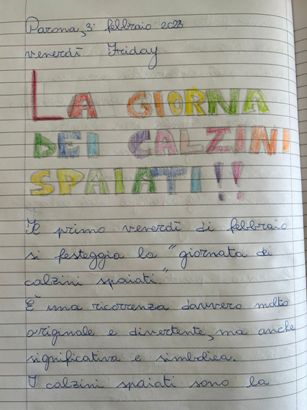 Parona, 3 febbraio 2023
venerdì Friday
LA GIORNA
DEI CALZINI
SPAIATI!!
Il primo venerdì di febbraio
si festeggia la "giornata dei
calzini spaiati."
È una ricorrenza davvero molto
originale e divertente, ma anche
significativa e simbolica.
I calzini spaiati sono la